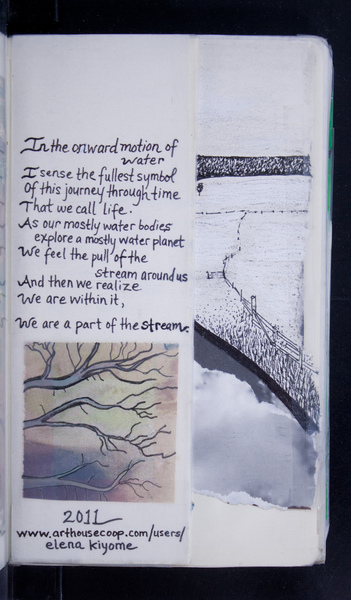 In the onward motion of
water
I sense the fullest symbol
Of this journey through time
That we call life.
As our mostly water bodies
explore a mostly water planet
We feel the pull of the
stream around us
And then we realize
We are within it,
We are a part of the stream.
2011
www.arthousecoop.com/users/
elena kiyome